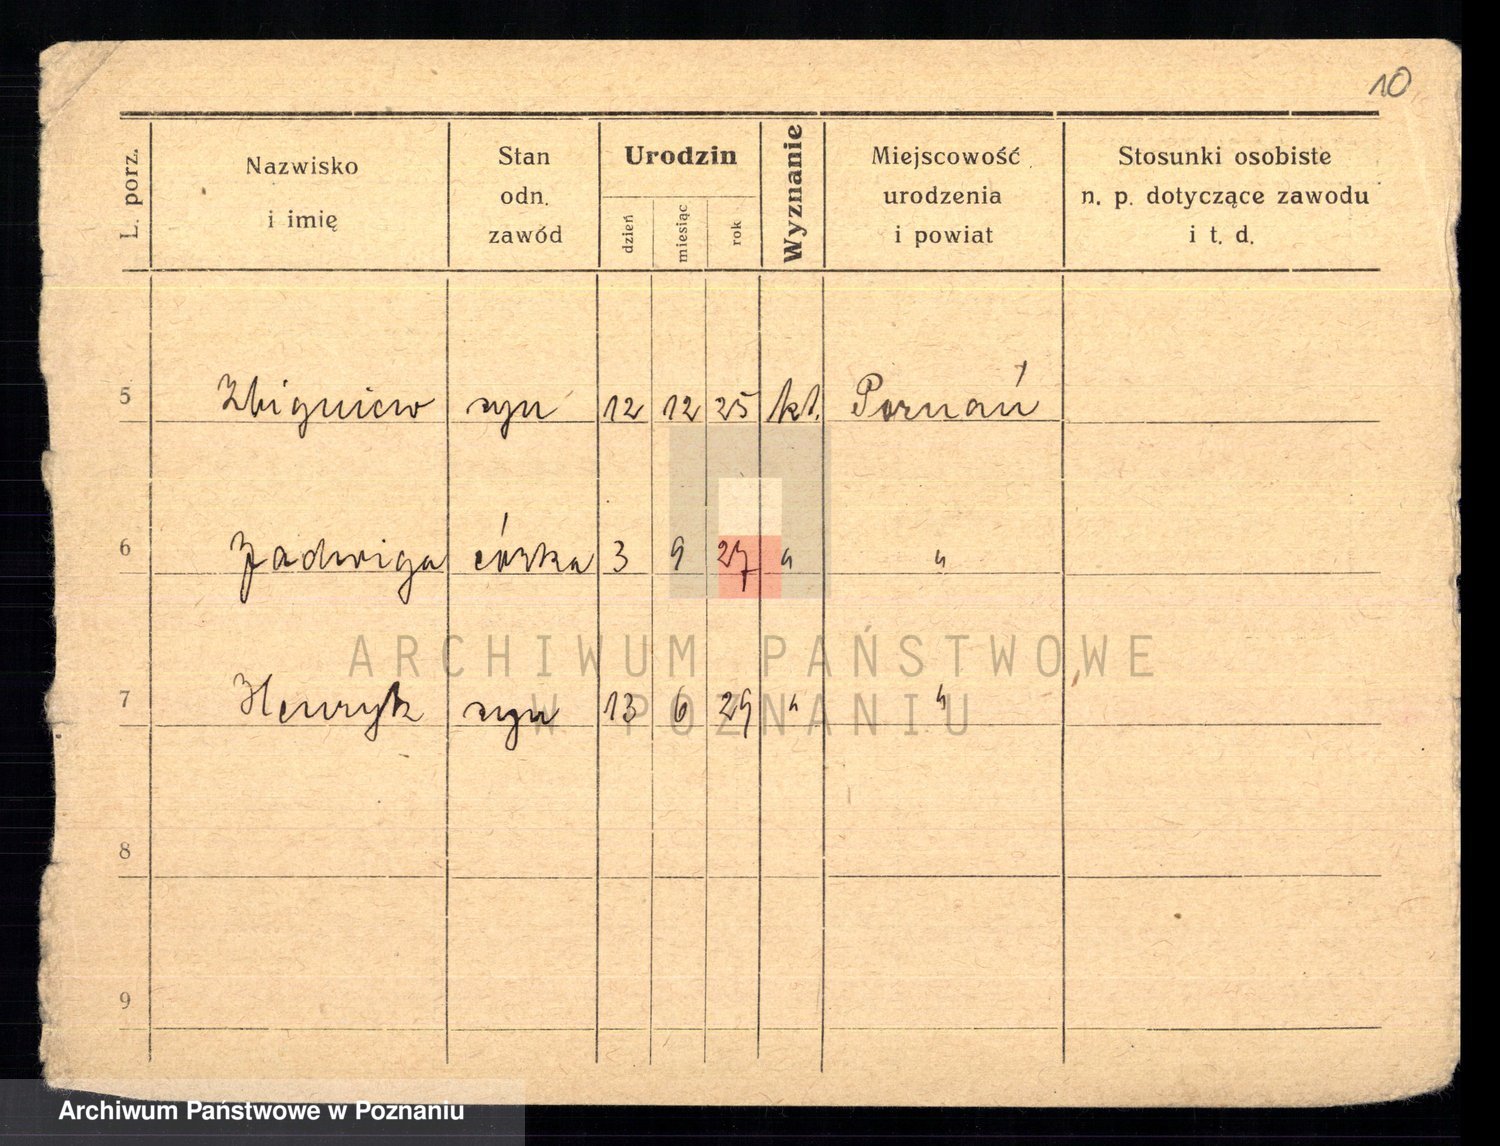 10
L. porz.
Nazwisko
i imię
Stan
odn.
zawód
Urodzin
dzień
miesiąc
rok
Wyznanie
Miejscowość
urodzenia
i powiat
Stosunki osobiste
n. p. dotyczące zawodu
i t. d.
5 Zbigniew syn 12 12 25 kt. Poznań
6 Jadwiga córka 3 9 27 " "
7 Henryk syn 13 6 29 " "
8
9
ARCHIWUM PAŃSTWOWE
W POZNANIU
Archiwum Państwowe w Poznaniu